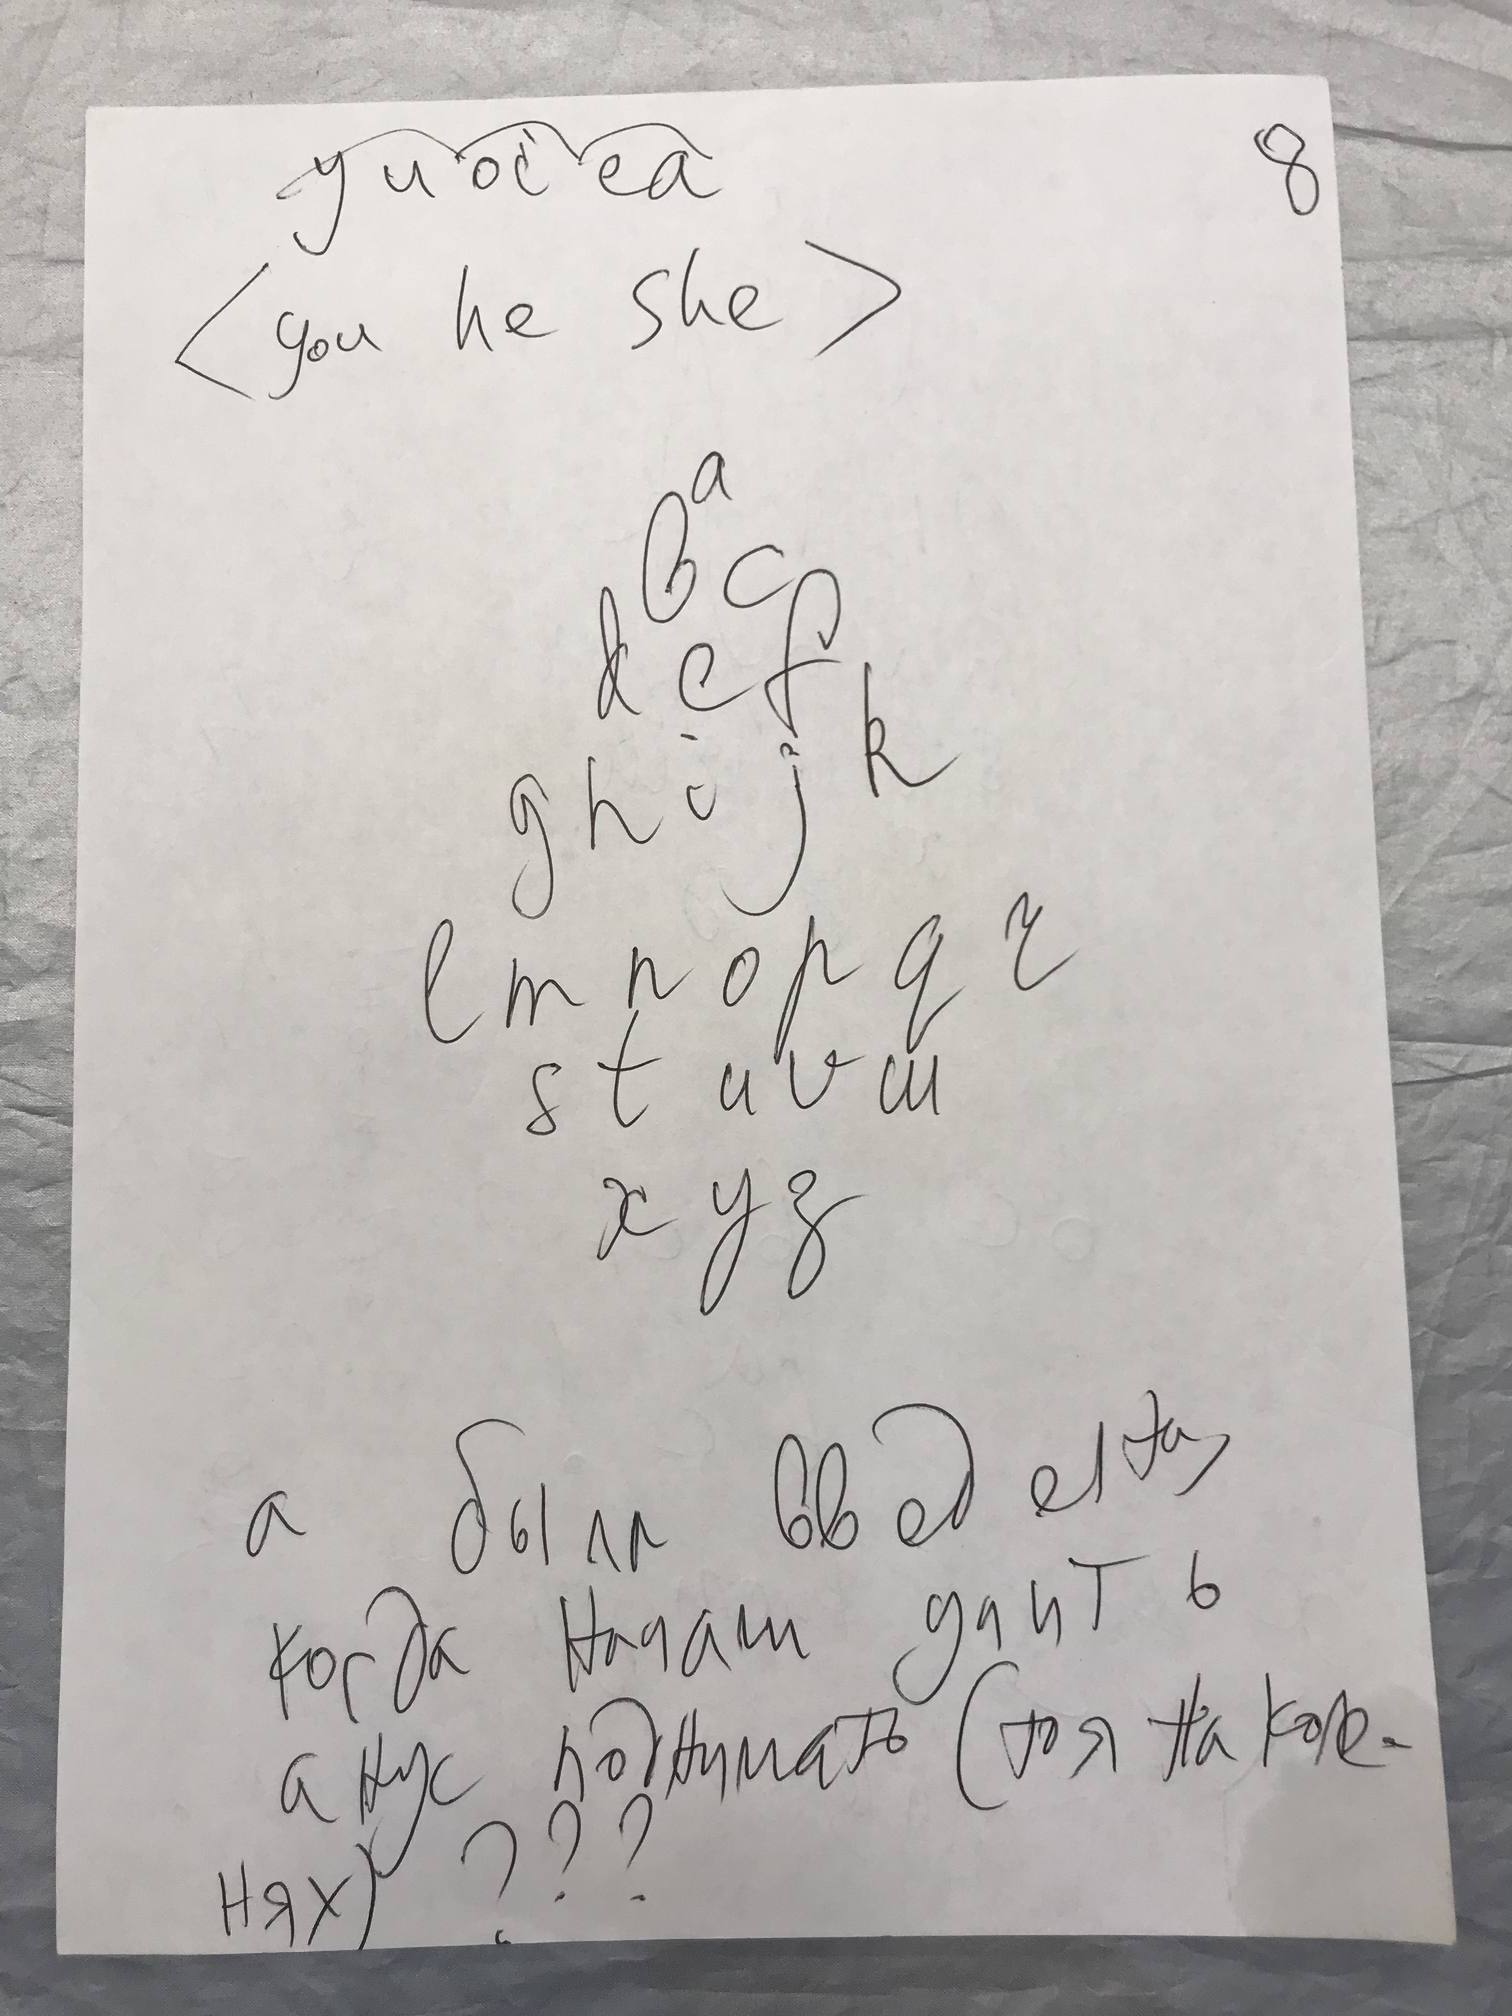 8
yu oi ea
<you he she>
a
b c
d e f
g h i j k
l m n o p q r
s t u v w
x y z
а были
когда начали
анус поднимать (стоя на коле-
нях) ???